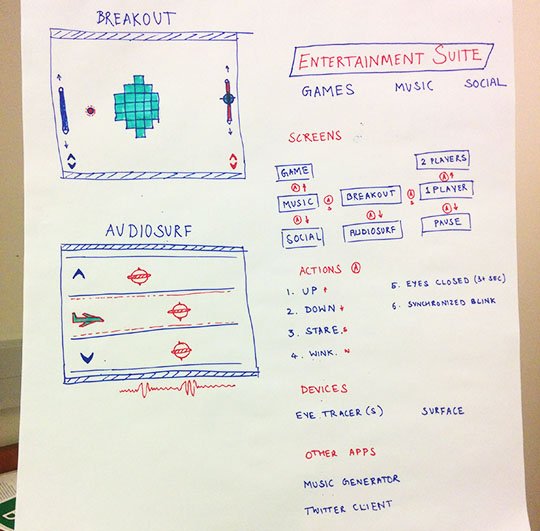 BREAKOUT
AUDIOSURF
ENTERTAINMENT SUITE
GAMES MUSIC SOCIAL
SCREENS
2 PLAYERS
GAME
A A
MUSIC A S BREAKOUT A S 1 PLAYER
A A A
SOCIAL AUDIOSURF PAUSE
ACTIONS A
1. UP
2. DOWN
3. STARE. S
4. WINK. W
5. EYES CLOSED (3+ SEC)
6. SYNCHRONIZED BLINK
DEVICES
EYE TRACER(S) SURFACE
OTHER APPS
MUSIC GENERATOR
TWITTER CLIENT